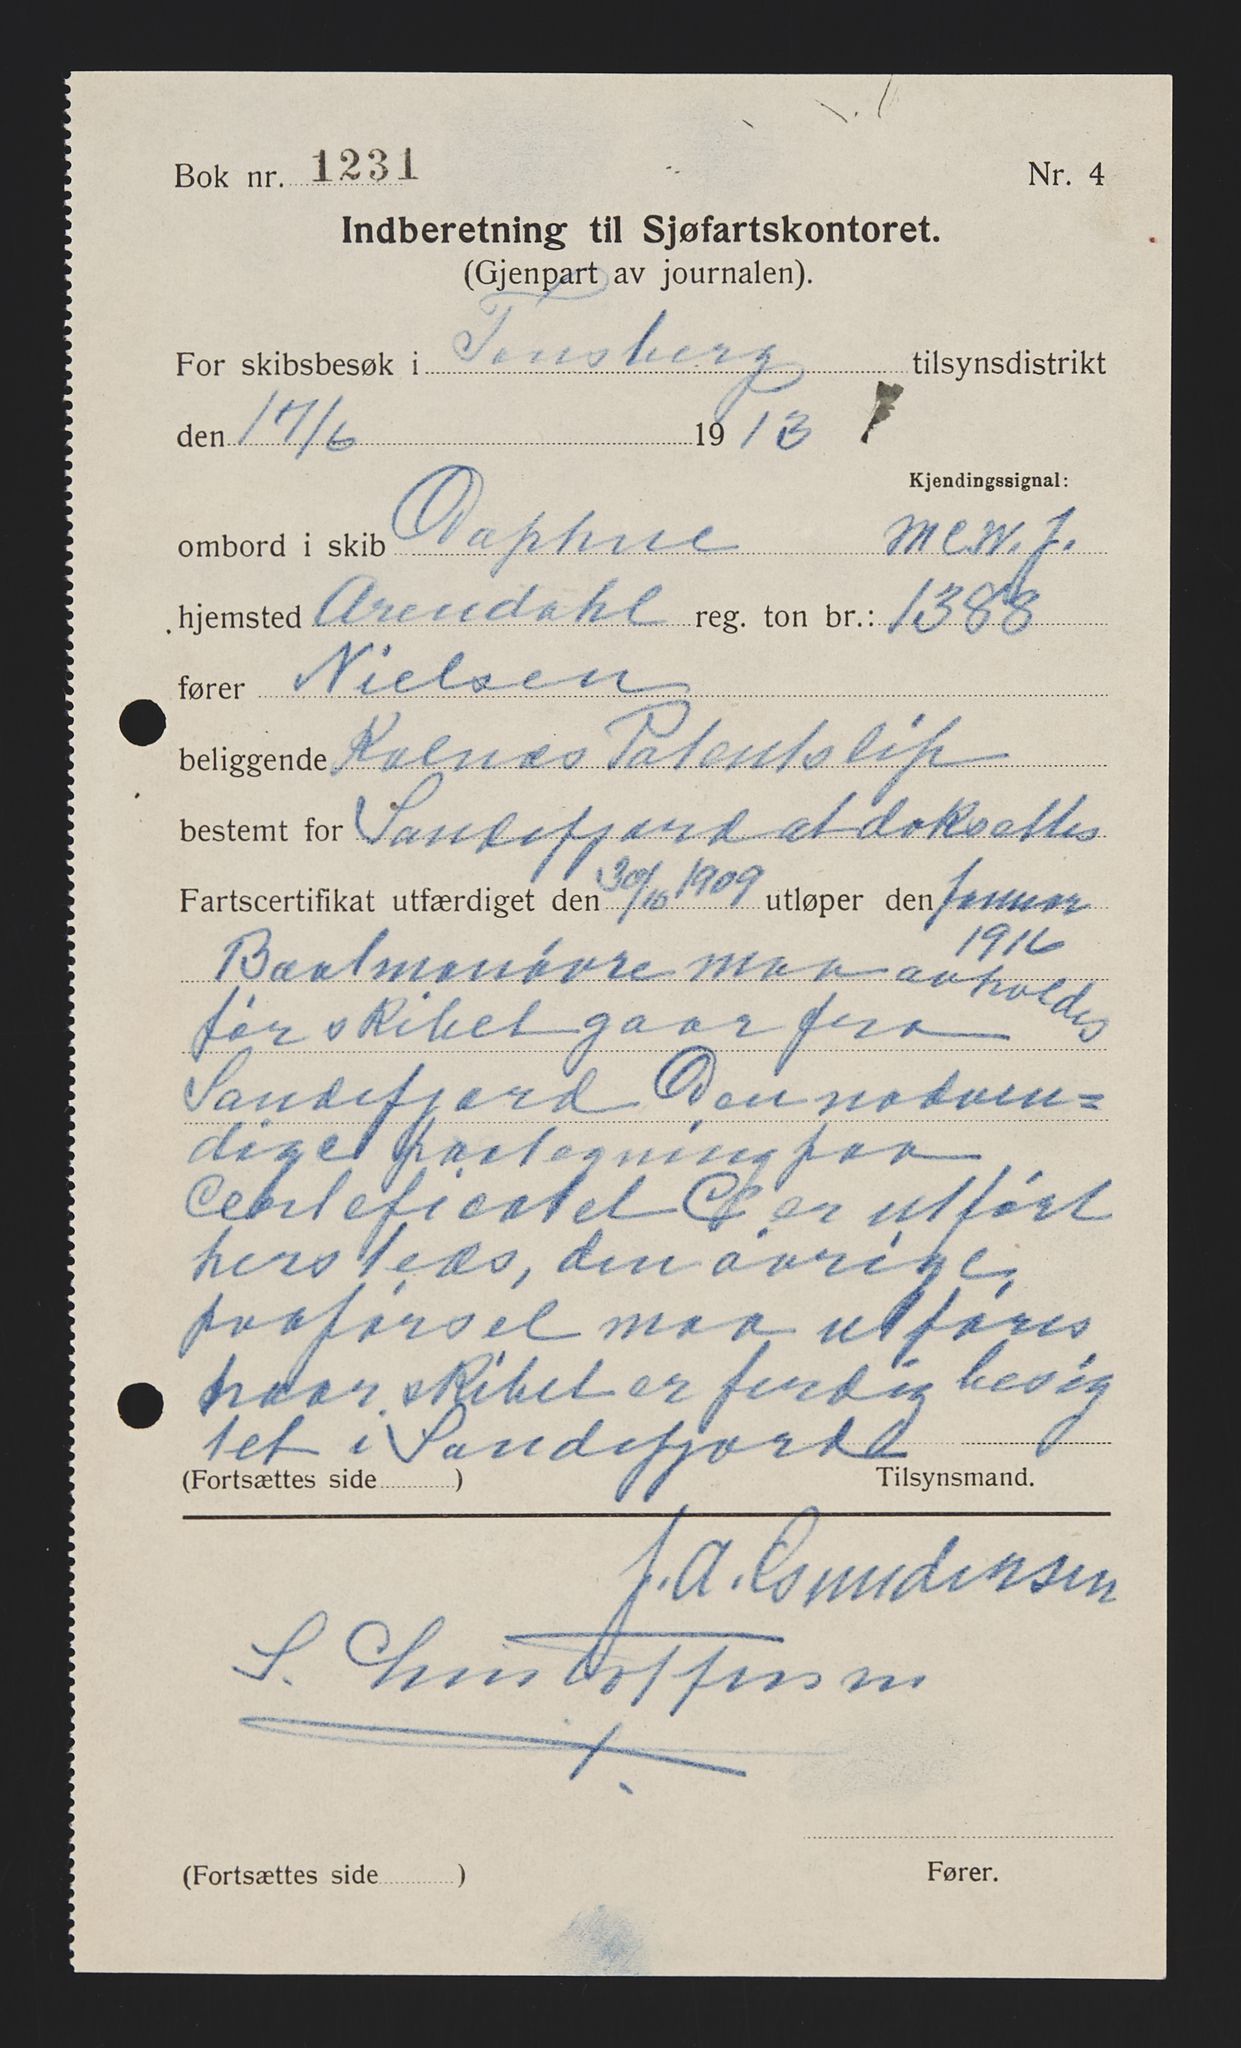 Bok nr. 1231 Nr. 4
Indberetning til Sjøfartskontoret.
(Gjenpart av journalen).
For skibsbesøk i Tønsberg tilsynsdistrikt
den 17/6 1913
Kjendingssignal:
ombord i skib Daphne M.C.W.J.
hjemsted Arendahl reg. ton br.: 1388
fører Nielsen
beliggende Kalnæs Patentslip
bestemt for Sandefjord at doksættes
Fartscertifikat utfærdiget den 30/10 1909 utløper den Januar
1914
Baatmanøvre maa avholdes
før skibet gaar fra
Sandefjord Den nødven=
dige paategning paa
Certeficatet C er utført
hersteds, den øvrige
paaførsel maa utføres
naar skibet er ferdig besig
tet i Sandefjord
(Fortsættes side ) Tilsynsmand.
J. A. Esmundensen
S. Christoffersen
(Fortsættes side ) Fører.